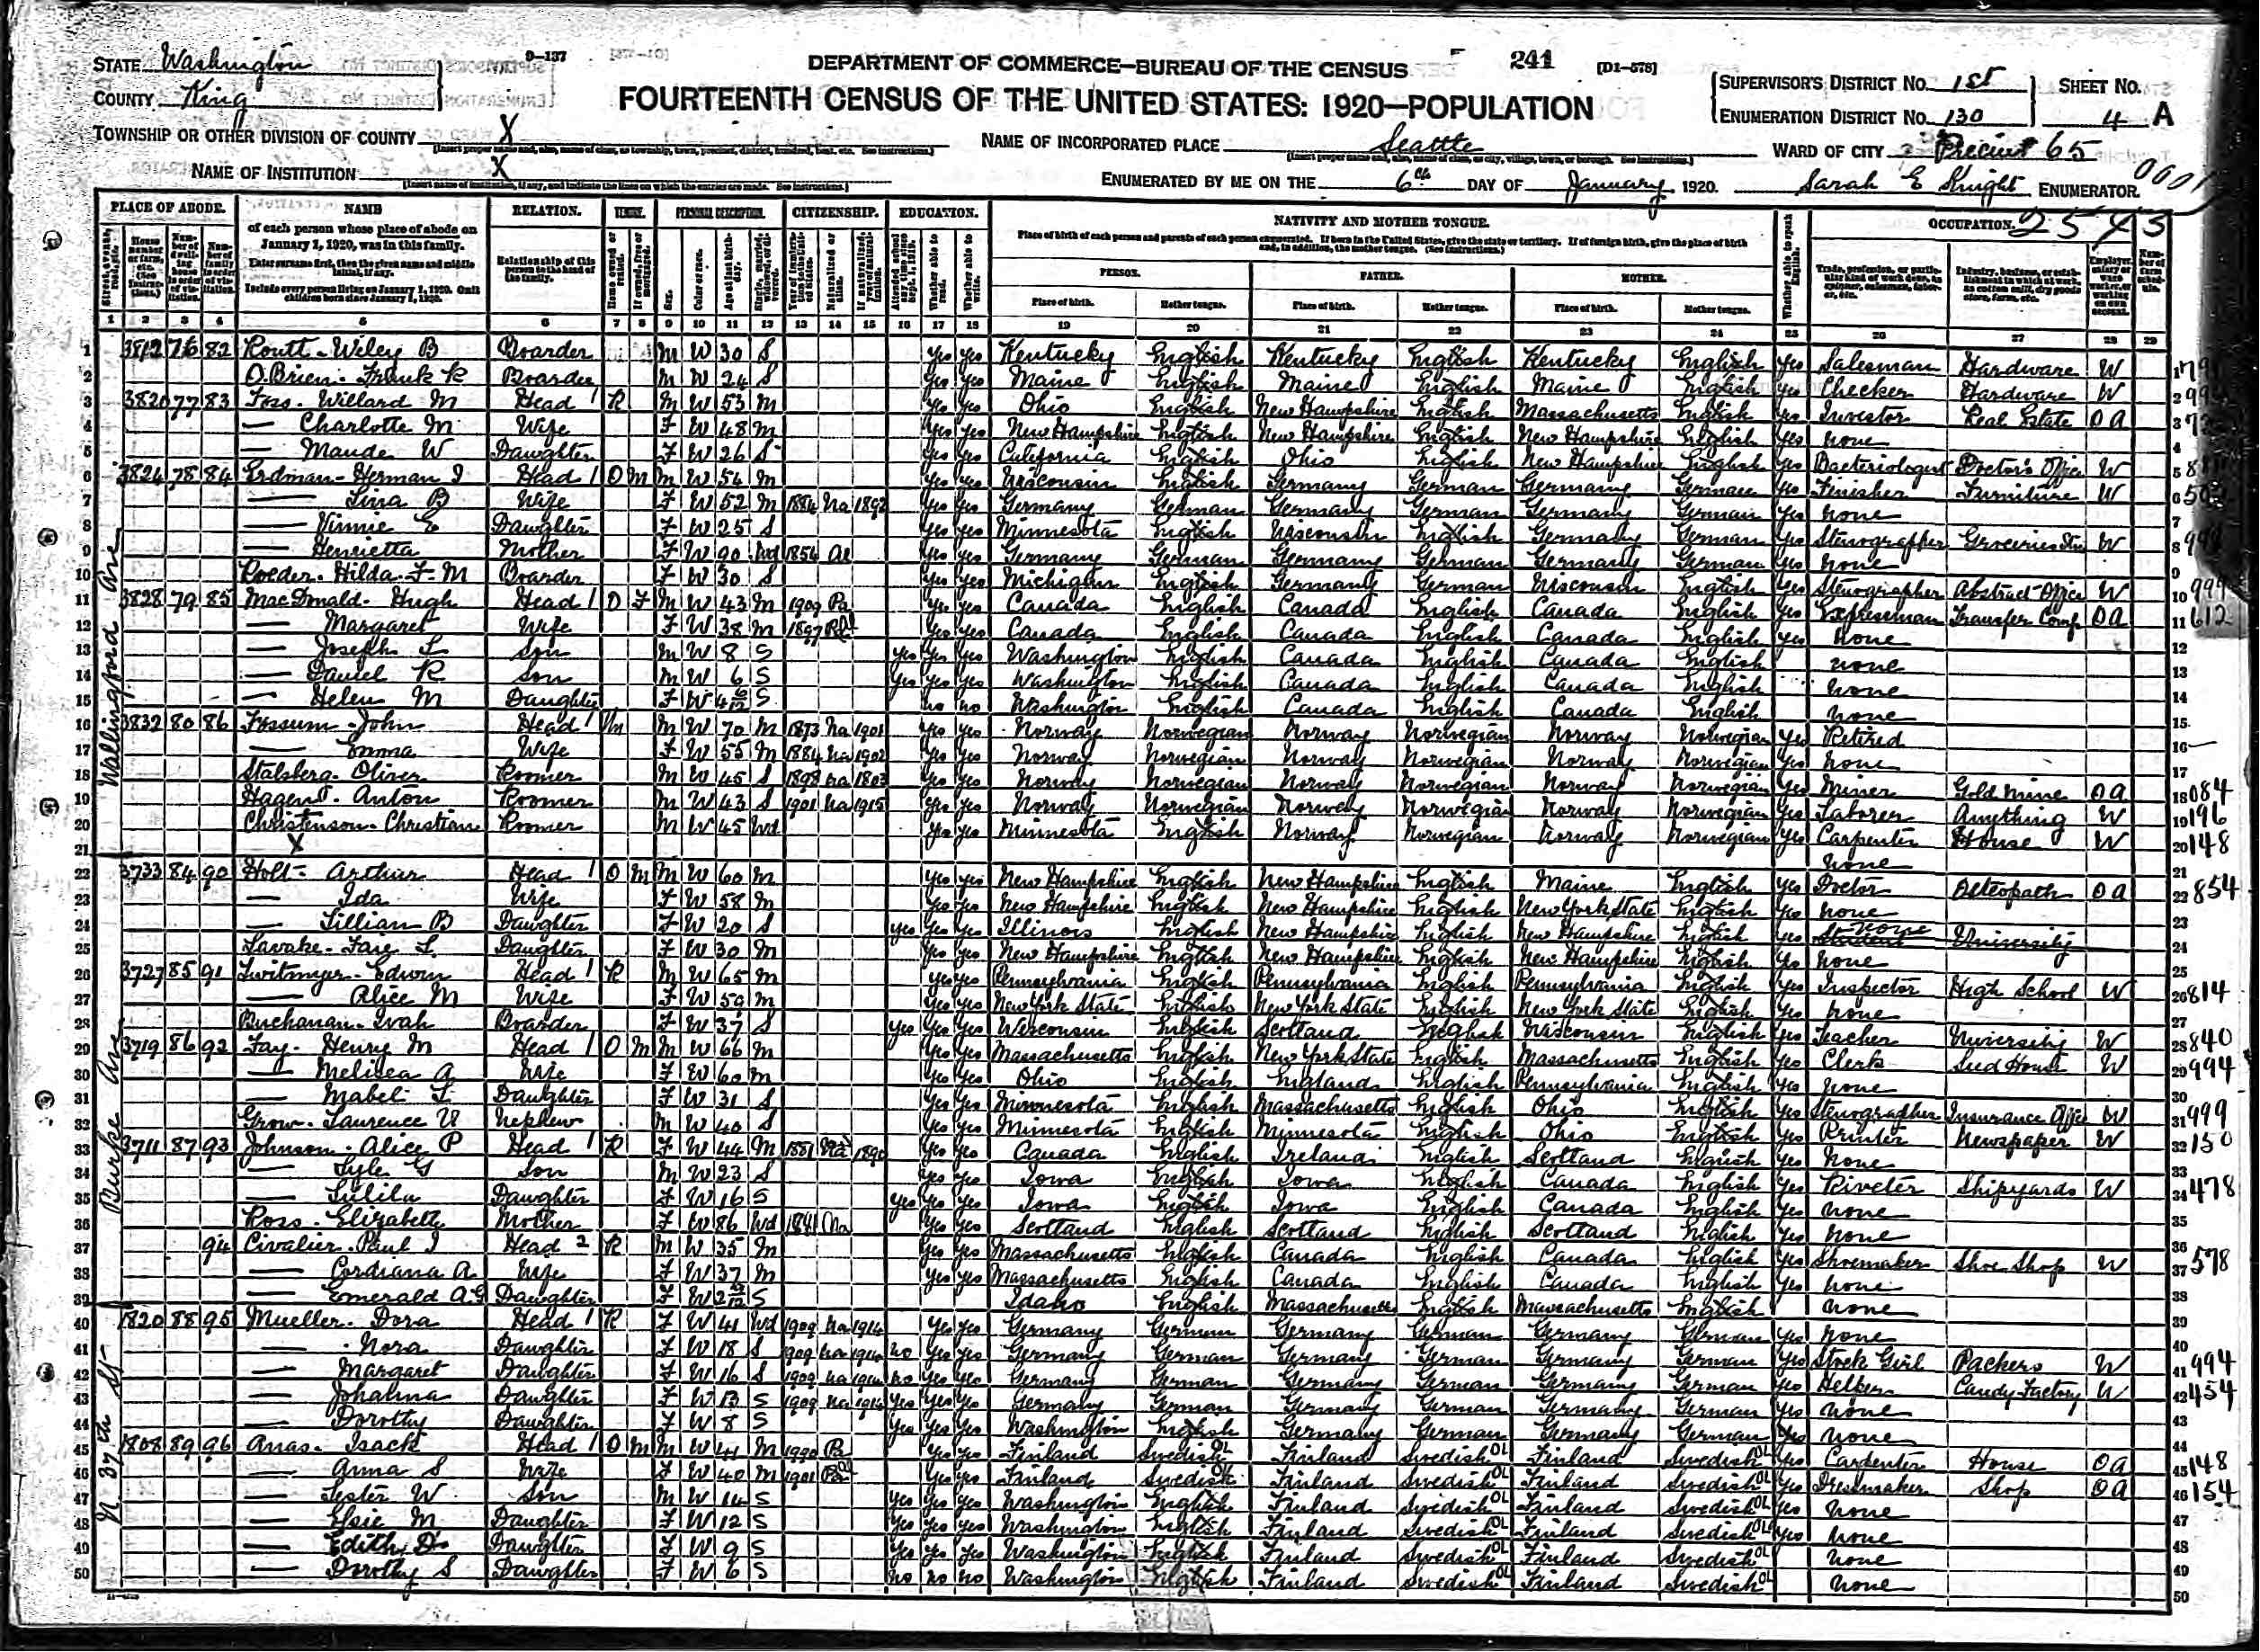 STATE Washington
COUNTY King
9-137
DEPARTMENT OF COMMERCE—BUREAU OF THE CENSUS
241
[D1-578]
FOURTEENTH CENSUS OF THE UNITED STATES: 1920—POPULATION
SUPERVISOR'S DISTRICT No. 1st
ENUMERATION DISTRICT No. 130
SHEET No. 4 A
TOWNSHIP OR OTHER DIVISION OF COUNTY X
NAME OF INCORPORATED PLACE Seattle
WARD OF CITY Precinct 65
NAME OF INSTITUTION X
ENUMERATED BY ME ON THE 6th DAY OF January, 1920. Sarah E Knight ENUMERATOR.
PLACE OF ABODE. NAME RELATION. TENURE. PERSONAL DESCRIPTION. CITIZENSHIP. EDUCATION. NATIVITY AND MOTHER TONGUE. OCCUPATION.
of each person whose place of abode on January 1, 1920, was in this family.
Enter surname first, then the given name and middle initial, if any.
Include every person living on January 1, 1920. Omit children born since January 1, 1920.
Relationship of this person to the head of the family.
PERSON. FATHER. MOTHER.
Place of birth. Mother tongue. Place of birth. Mother tongue. Place of birth. Mother tongue.
1 2 3 4 5 6 7 8 9 10 11 12 13 14 15 16 17 18 19 20 21 22 23 24 25 26 27 28 29
Wallingford Ave
1 3812 76 82 Routt - Wiley B Boarder M W 30 S Yes Yes Kentucky English Kentucky English Kentucky English Yes Salesman Hardware W
2 O.Brien - Frank R Boarder M W 24 S Yes Yes Maine English Maine English Maine English Yes Checker Hardware W
3 3820 77 83 Foss - Willard M Head 1 R M W 53 M Yes Yes Ohio English New Hampshire English Massachusetts English Yes Investor Real Estate OA
4 — Charlotte M Wife F W 48 M Yes Yes New Hampshire English New Hampshire English New Hampshire English Yes none
5 — Maude W Daughter F W 26 S Yes Yes California English Ohio English New Hampshire English Yes Bacteriologist Doctor's Office W
6 3824 78 84 Erdman - Herman J Head 1 O M M W 54 M Yes Yes Wisconsin English Germany German Germany German Yes Finisher Furniture W
7 — Lina B Wife F W 52 M 1884 Na 1892 Yes Yes Germany German Germany German Germany German Yes none
8 — Vinnie E Daughter F W 25 S Yes Yes Minnesota English Wisconsin English Germany German Yes Stenographer W
9 — Henrietta Mother F W 90 Wd 1854 Al Yes Yes Germany German Germany German Germany German Yes none
10 Roeder - Hilda F M Boarder F W 30 S Yes Yes Michigan English Germany German Wisconsin English Yes Stenographer Abstract Office W
11 3828 79 85 MacDonald - Hugh Head 1 O F M W 43 M 1909 Pa Yes Yes Canada English Canada English Canada English Yes Expressman Transfer Comp OA 612
12 — Margaret Wife F W 38 M 1897 Yes Yes Canada English Canada English Canada English Yes none
13 — Joseph L Son M W 8 S Yes Yes Yes Washington English Canada English Canada English none
14 — Daniel R Son M W 6 S Yes Yes Yes Washington English Canada English Canada English none
15 — Helen M Daughter F W S no no Washington English Canada English Canada English none
16 3832 80 86 Fossum - John Head 1 M W 70 M 1873 Na 1901 Yes Yes Norway Norwegian Norway Norwegian Norway Norwegian Yes Retired
17 — Emma Wife F W 55 M 1884 Na 1902 Yes Yes Norway Norwegian Norway Norwegian Norway Norwegian Yes none
18 Stalsberg - Oliver Roomer M W 45 S 1898 Na 1803 Yes Yes Norway Norwegian Norway Norwegian Norway Norwegian Yes Miner Gold Mine OA 084
19 Hagen - Anton Roomer M W 43 S 1901 Na 1915 Yes Yes Norway Norwegian Norway Norwegian Norway Norwegian Yes Laborer Anything W 196
20 Christenson - Christian Roomer M W 45 Wd Yes Yes Minnesota English Norway Norwegian Norway Norwegian Yes Carpenter House W 148
21 X none
Burke Ave
22 3733 84 90 Holt - Arthur Head 1 O M M W 60 M Yes Yes New Hampshire English New Hampshire English Maine English Yes Doctor Osteopath OA 854
23 — Ida Wife F W 58 M Yes Yes New Hampshire English New Hampshire English New York State English Yes none
24 — Lillian B Daughter F W 20 S Yes Yes Yes Illinois English New Hampshire English New Hampshire English Yes Student none University
25 Lavake - Faye L Daughter F W 30 M Yes Yes New Hampshire English New Hampshire English New Hampshire English Yes none
26 3727 85 91 Twitmyer - Edwin Head 1 R M W 65 M Yes Yes Pennsylvania English Pennsylvania English Pennsylvania English Yes Inspector High School W 814
27 — Alice M Wife F W 59 M Yes Yes New York State English New York State English New York State English Yes none
28 Buchanan - Ivah Boarder F W 37 S Yes Yes Yes Wisconsin English Scotland English Wisconsin English Yes Teacher University W 840
29 3719 86 92 Fay - Henry M Head 1 O M M W 66 M Yes Yes Massachusetts English New York State English Massachusetts English Yes Clerk Seed House W 994
30 — Melissa A Wife F W 60 M Yes Yes Ohio English England English Pennsylvania English Yes none
31 — Mabel L Daughter F W 31 S Yes Yes Minnesota English Massachusetts English Ohio English Yes Stenographer Insurance Office W 999
32 Grow - Laurence U Nephew M W 40 S Yes Yes Minnesota English Minnesota English Ohio English Yes Printer Newspaper W 150
33 3711 87 93 Johnson - Alice P Head 1 R F W 44 M 1881 Na 1890 Yes Yes Canada English Ireland English Scotland English Yes none
34 — Lyle G Son M W 23 S Yes Yes Iowa English Iowa English Canada English Yes Riveter Shipyards W 478
35 — Lulila Daughter F W 16 S Yes Yes Yes Iowa English Iowa English Canada English Yes none
36 Ross - Elizabeth Mother F W 86 Wd 1841 Na Yes Yes Scotland English Scotland English Scotland English Yes none
37 94 Civalier - Paul J Head 2 R M W 35 M Yes Yes Massachusetts English Canada English Canada English Yes Shoemaker Shoe Shop W 578
38 — Cordiana A Wife F W 37 M Yes Yes Massachusetts English Canada English Canada English Yes none
39 — Emerald A.G Daughter F W S Idaho English Massachusetts English Massachusetts English none
N. 37th St
40 1820 88 95 Mueller - Dora Head 1 R F W 41 Wd 1909 Na 1914 Yes Yes Germany German Germany German Germany German Yes none
41 — Nora Daughter F W 18 S 1909 Na 1914 no Yes Yes Germany German Germany German Germany German Yes Stock Girl Packers W 994
42 — Margaret Daughter F W 16 S 1909 Na 1914 no Yes Yes Germany German Germany German Germany German Yes Helper Candy Factory W 454
43 — Johanna Daughter F W 13 S 1909 Na 1914 Yes Yes Yes Germany German Germany German Germany German Yes none
44 — Dorothy Daughter F W 8 S Yes Yes Yes Washington English Germany German Germany German Yes none
45 1808 89 96 Anas - Isack Head 1 O M M W 41 M 1990 Pa Yes Yes Finland Swedish Finland Swedish Finland Swedish Yes Carpenter House OA 148
46 — Anna S Wife F W 40 M 1901 Pa Yes Yes Finland Swedish Finland Swedish Finland Swedish Yes Dressmaker Shop OA 154
47 — Lester W Son M W 14 S Yes Yes Yes Washington English Finland Swedish Finland Swedish Yes none
48 — Elsie M Daughter F W 12 S Yes Yes Yes Washington English Finland Swedish Finland Swedish Yes none
49 — Edith D Daughter F W 9 S Yes Yes Yes Washington English Finland Swedish Finland Swedish none
50 — Dorothy S Daughter F W 6 S no no no Washington English Finland Swedish Finland Swedish none